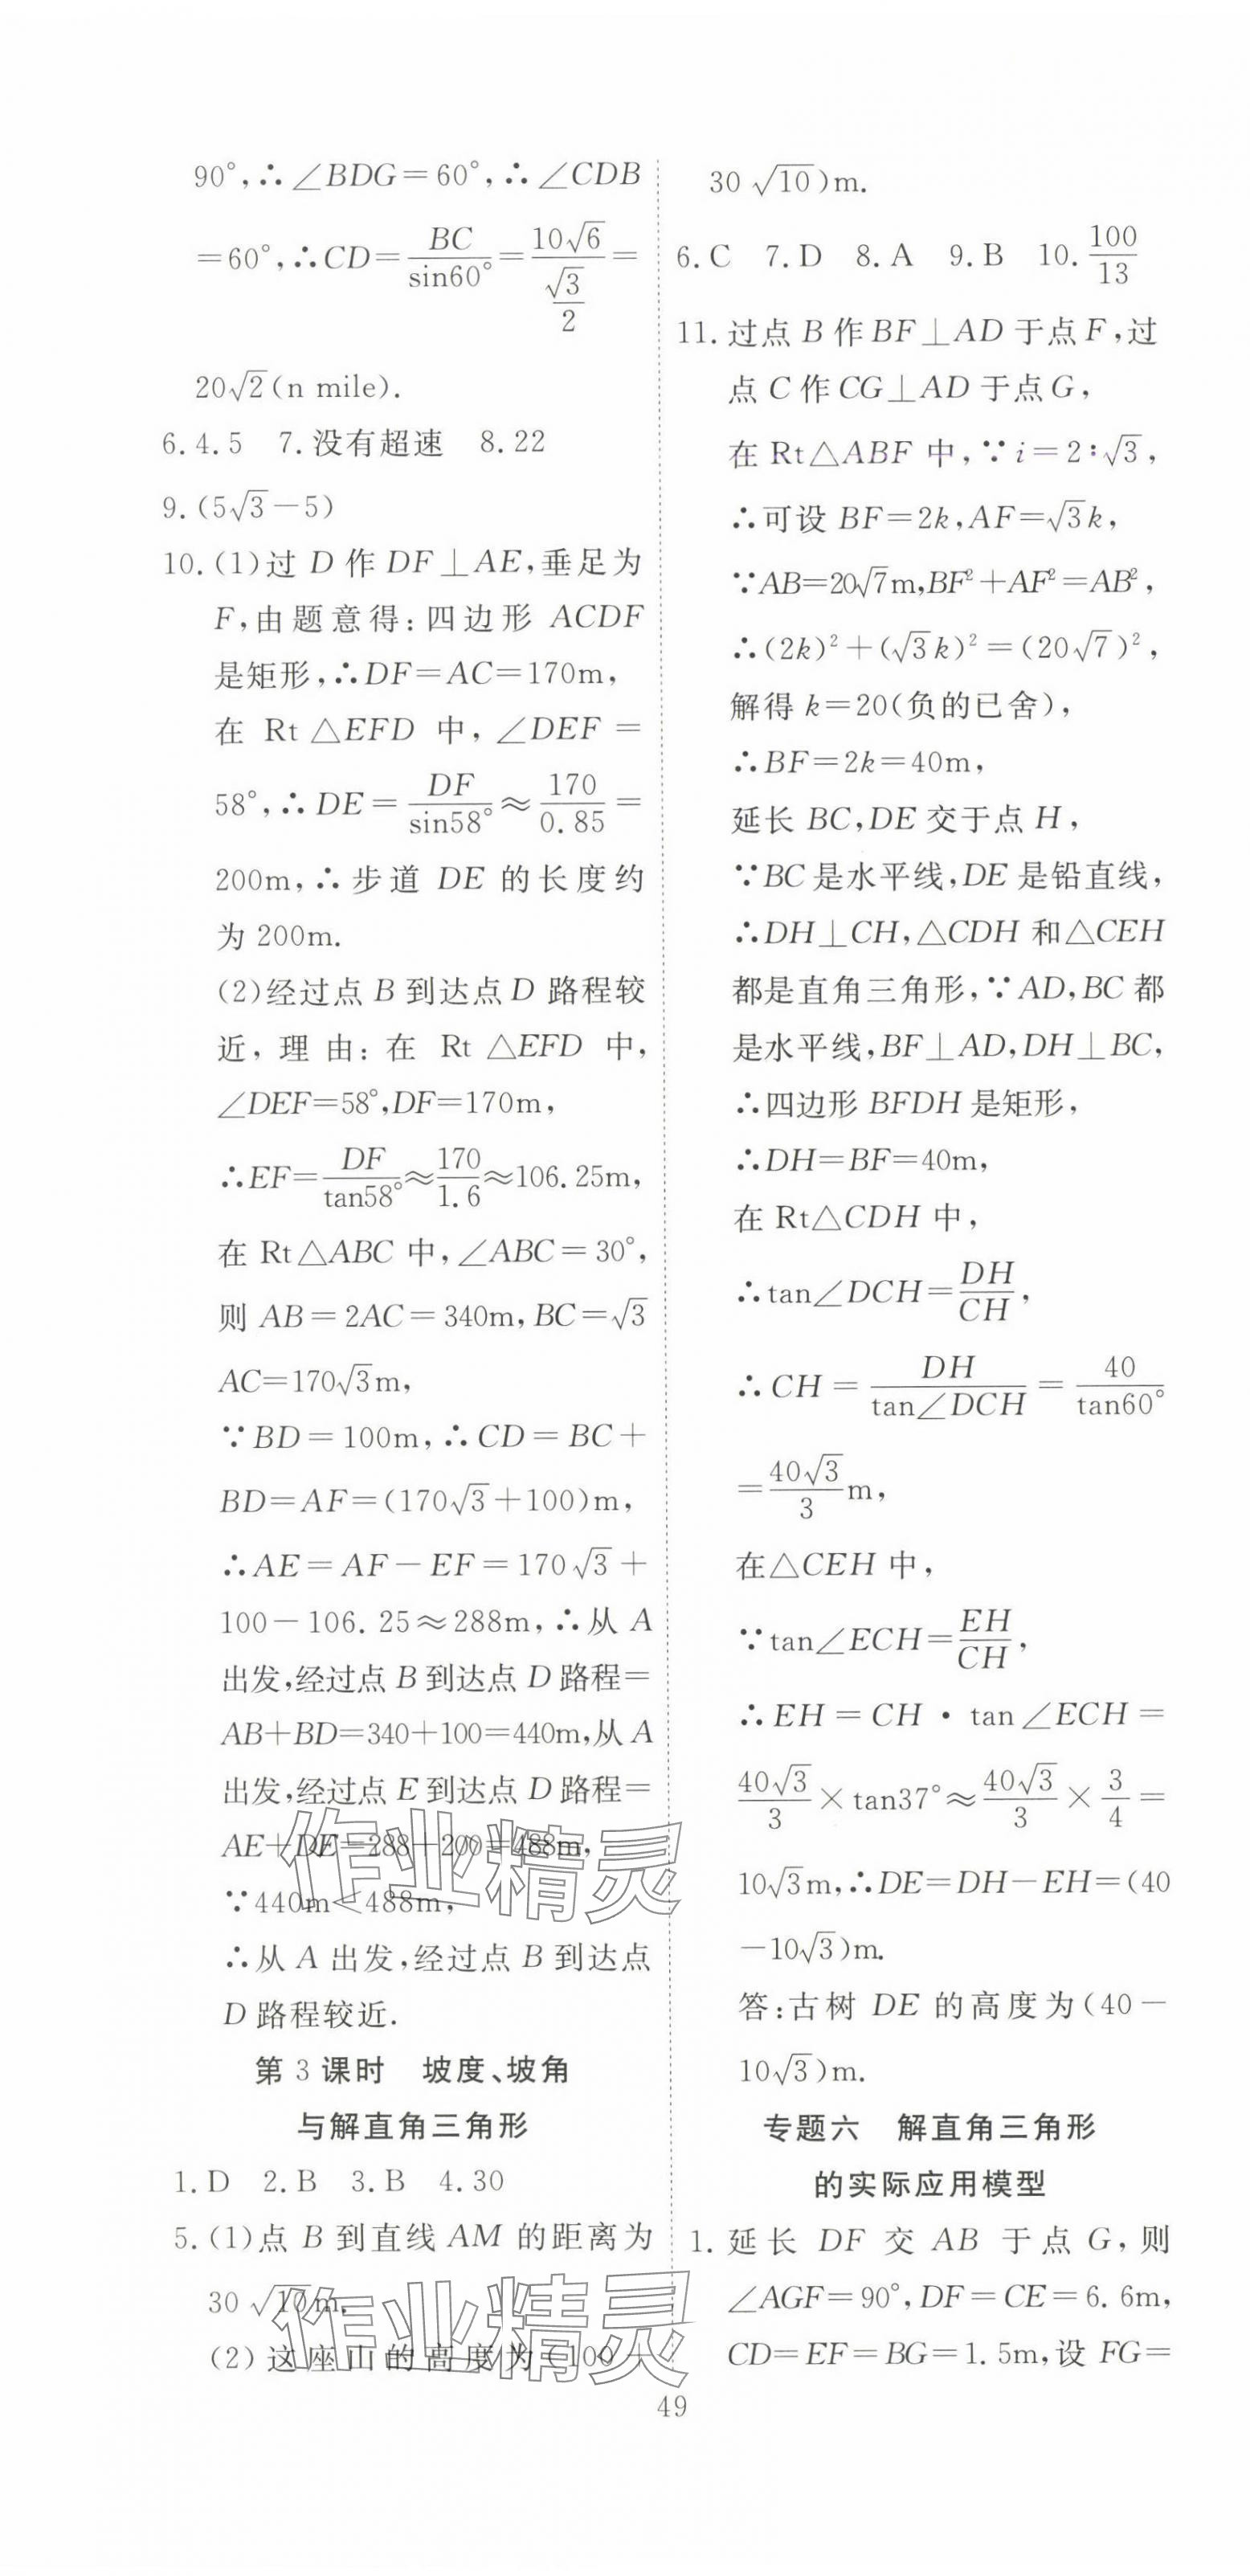 90°,∴∠BDG=60°,∴∠CDB
=60°,∴CD=BC/sin60°=10√6/(√3/2)=
20√2(n mile).
6.4.5 7.没有超速 8.22
9.(5√3-5)
10.(1)过 D 作 DF⊥AE,垂足为
F,由题意得:四边形 ACDF
是矩形,∴DF=AC=170m,
在 Rt△EFD 中,∠DEF=
58°,∴DE=DF/sin58°≈170/0.85=
200m,∴步道 DE 的长度约
为 200m.
(2)经过点 B 到达点 D 路程较
近,理由:在 Rt△EFD 中,
∠DEF=58°,DF=170m,
∴EF=DF/tan58°≈170/1.6≈106.25m,
在 Rt△ABC 中,∠ABC=30°,
则 AB=2AC=340m,BC=√3
AC=170√3m,
∵BD=100m,∴CD=BC+
BD=AF=(170√3+100)m,
∴AE=AF-EF=170√3+
100-106.25≈288m,∴从 A
出发,经过点 B 到达点 D 路程=
AB+BD=340+100=440m,从 A
出发,经过点 E 到达点 D 路程=
AE+DE=288+200=488m,
∵440m<488m,
∴从 A 出发,经过点 B 到达点
D 路程较近.
第 3 课时 坡度、坡角
与解直角三角形
1.D 2.B 3.B 4.30
5.(1)点 B 到直线 AM 的距离为
30√10m.
(2)这座山的高度为(100-
30√10)m.
6.C 7.D 8.A 9.B 10.100/13
11.过点 B 作 BF⊥AD 于点 F,过
点 C 作 CG⊥AD 于点 G,
在 Rt△ABF 中,∵i=2:√3,
∴可设 BF=2k,AF=√3k,
∵AB=20√7m,BF²+AF²=AB²,
∴(2k)²+(√3k)²=(20√7)²,
解得 k=20(负的已舍),
∴BF=2k=40m,
延长 BC,DE 交于点 H,
∵BC 是水平线,DE 是铅直线,
∴DH⊥CH,△CDH 和△CEH
都是直角三角形,∵AD,BC 都
是水平线,BF⊥AD,DH⊥BC,
∴四边形 BFDH 是矩形,
∴DH=BF=40m,
在 Rt△CDH 中,
∴tan∠DCH=DH/CH,
∴CH=DH/tan∠DCH=40/tan60°
=40√3/3m,
在△CEH 中,
∵tan∠ECH=EH/CH,
∴EH=CH·tan∠ECH=
40√3/3×tan37°≈40√3/3×3/4=
10√3m,∴DE=DH-EH=(40
-10√3)m.
答:古树 DE 的高度为(40-
10√3)m.
专题六 解直角三角形
的实际应用模型
1.延长 DF 交 AB 于点 G,则
∠AGF=90°,DF=CE=6.6m,
CD=EF=BG=1.5m,设 FG=
49
作业精灵
作业精灵